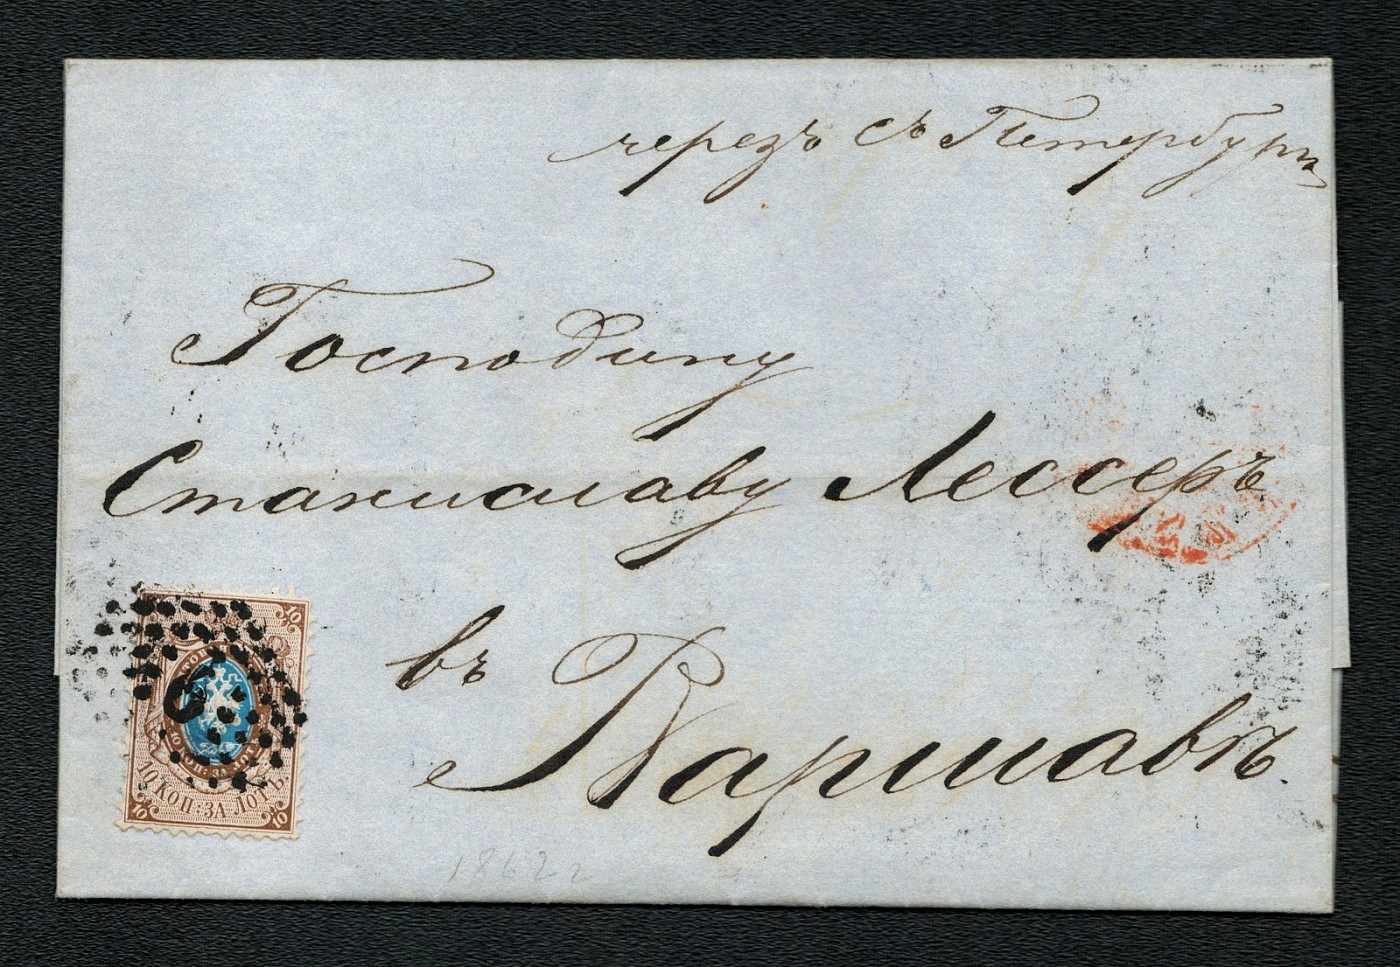 черезъ С Петербургъ
Господину
Станиславу Лессеръ
въ
Варшавѣ.
10
10 КОП: ЗА ЛОТЪ
10 КОП: ЗА ЛОТЪ
10 10
1862 г